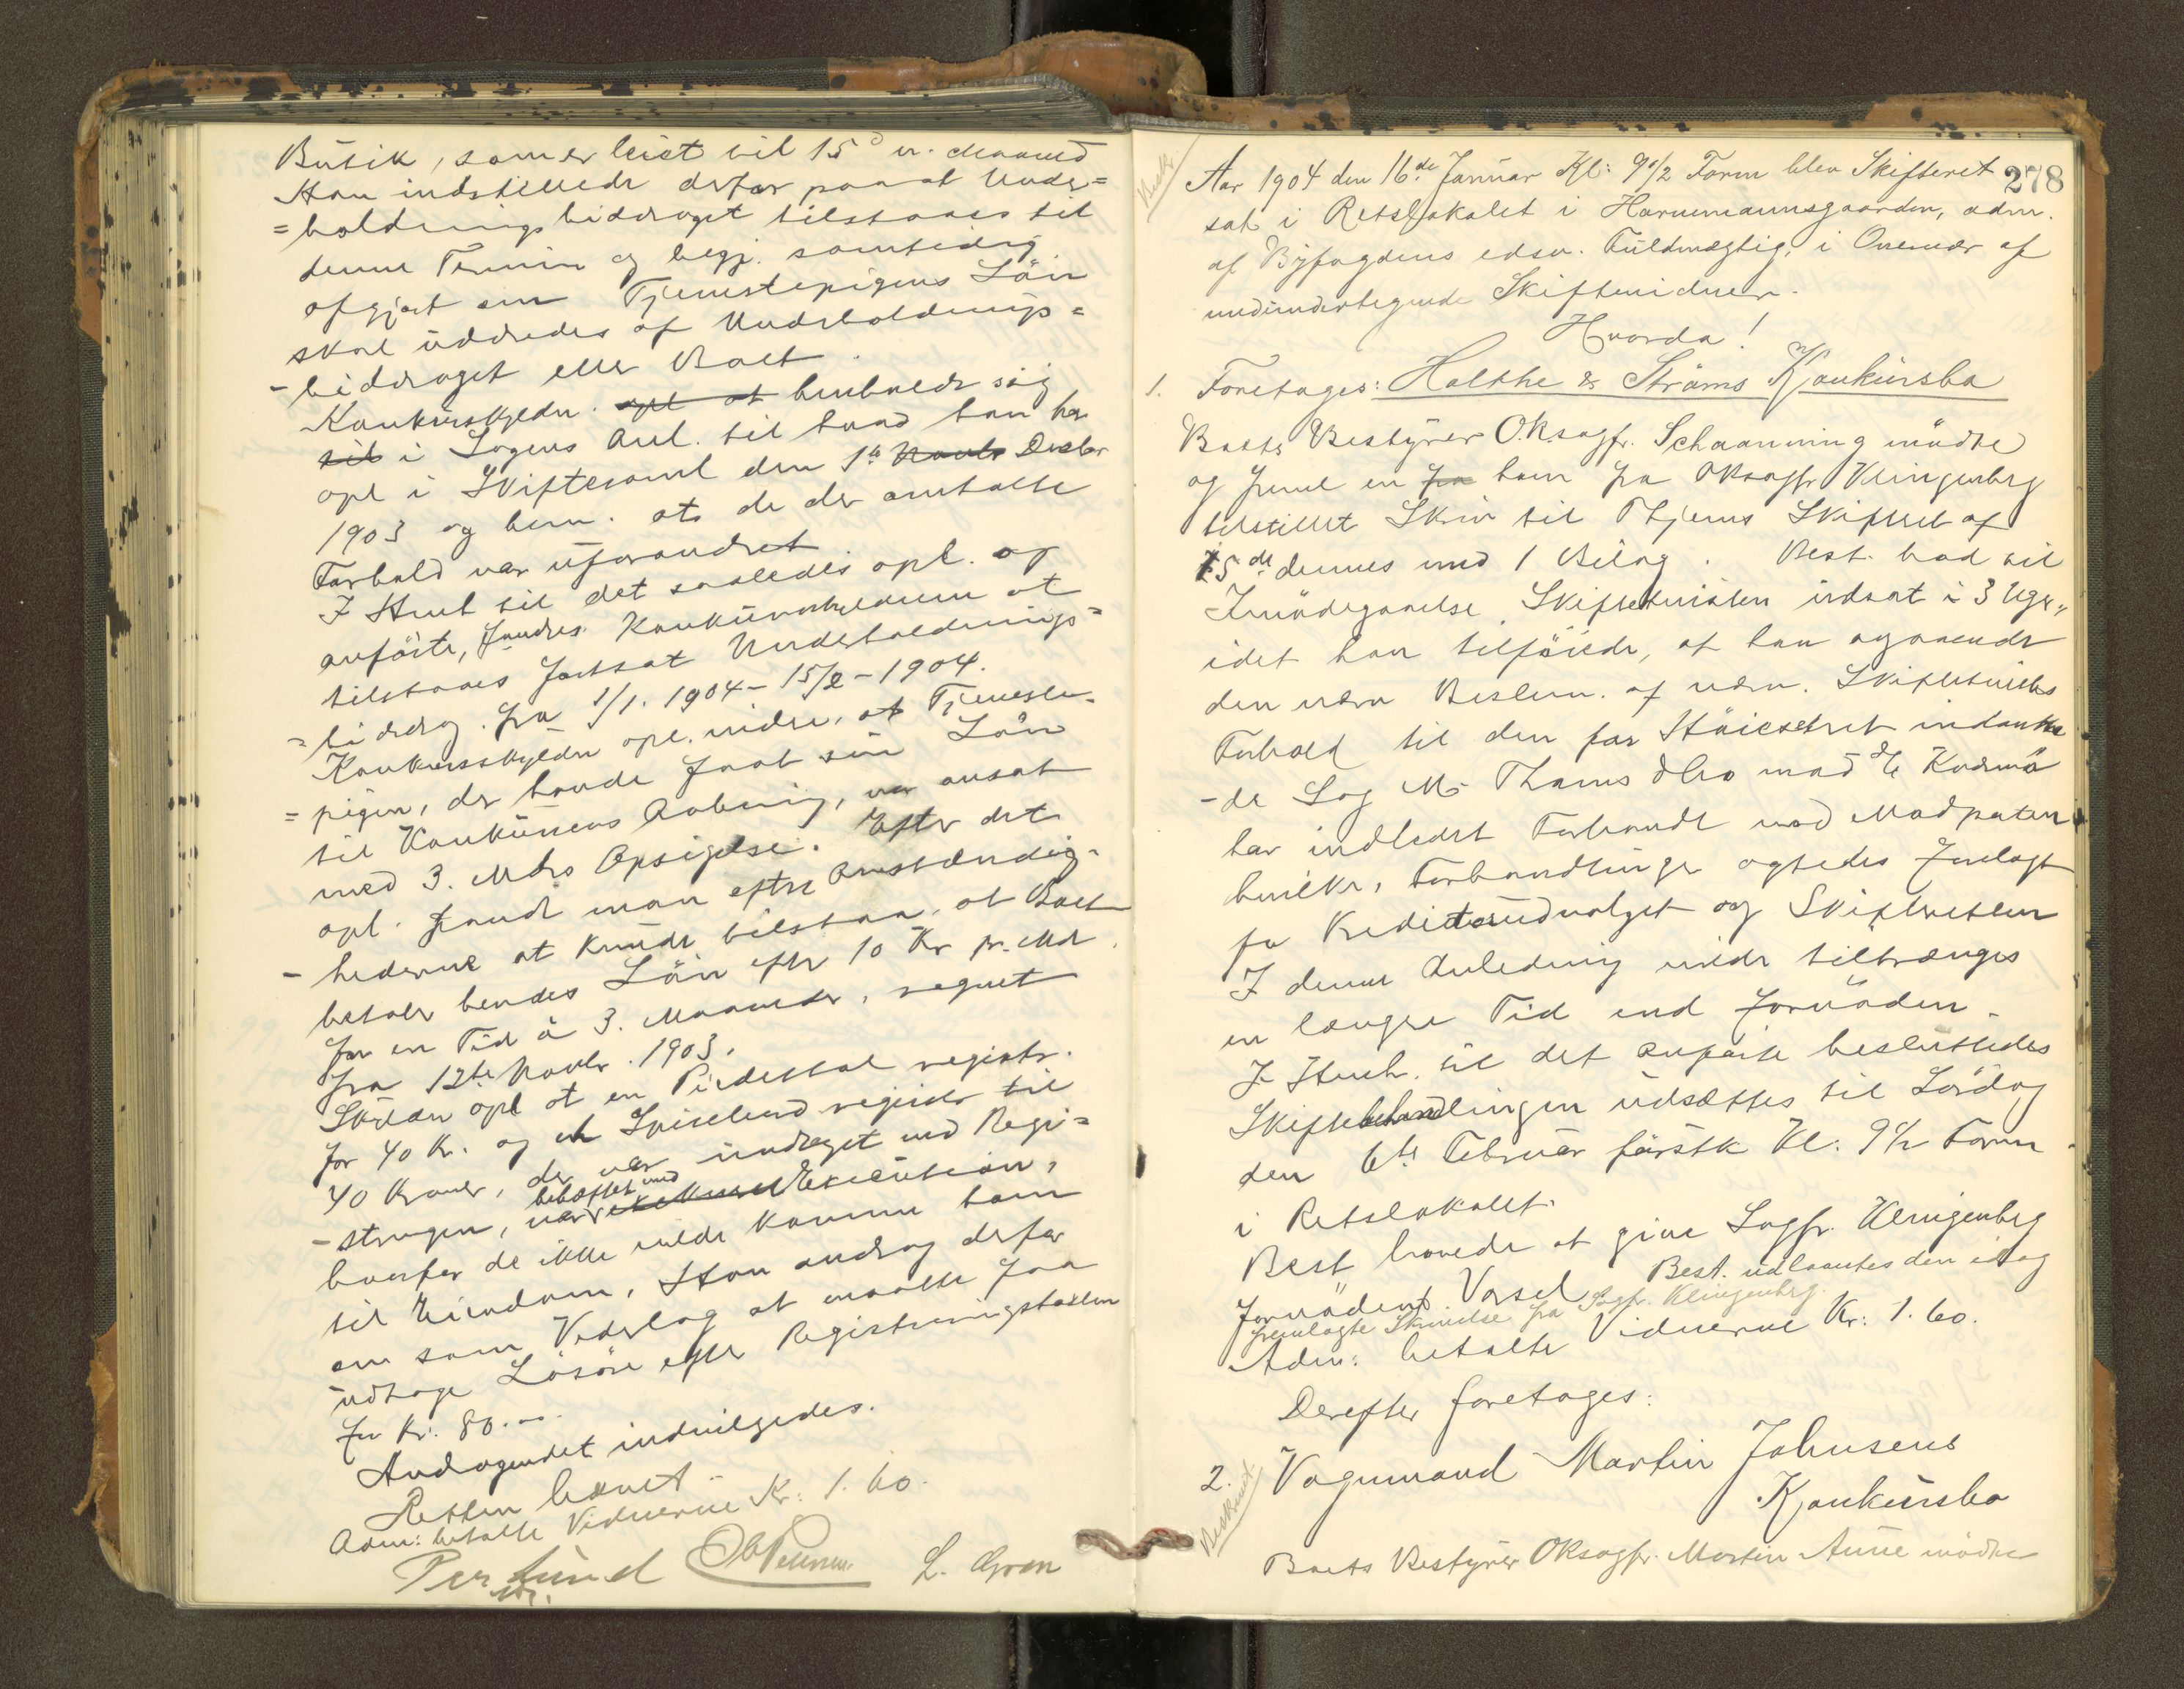 Butik, som er leiet til 15de n. Maaned
Han indstillede derfor paa at Under=
=holdningsbidraget tilstaaes til
denne Termin og begj. samtidig
afgjort om Tjenestepigens Løn
skal udredes af Underholdnings=
-bidraget eller Boet.
Konkursskyldn. opl at henholdt sig
til i Sagens Anl. til hvad han har
opl i Skiftesaml den 1ste Novbr Decbr
1903 og bem. at de der omtalte
Forhold var uforandret
I Henh til det saaledes opl. og
anførte, fandtes Konkursskyldneren at
tilstaaes fortsat Underholdnings=
=bidrag fra 1/1. 1904 - 15/2 - 1904.
Konkursskyldn opl. videre, at Tjeneste-
=pigen, der havde faaet sin Løn
til Konkursens Aabning, var ansat
med 3. Mdrs Opsigelse. Efter det
opl. fandt man efter Omstændig-
-hederne at kunde tilstaa, at Boet
betaler hendes Løn efter 10 Kr pr. Md.
for en Tid à 3. Maaneder, regnet
fra 12te Novbr. 1903.
Skyldn opl at en Piedestal registr.
for 40 Kr. og et Spisebord registr til
40 Kroner, der var undraget ved Regi=
-stringen, var behæftet med Execution,
hvorfor de ikke vilde komme ham
til Eiendom, Han androg derfor
om som Vederlag at maatte faa
udtage Løsøre efter Registreringstaxten
for Kr: 80.00.
Andragendet indvilgedes.
Retten hævet
Adm: betalte Vidnerne Kr: 1.60.
Per Lund
L. Gron
278
Beskr.
Aar 1904 den 16de Januar Kl: 9 1/2 Form blev Skifteret
sat i Retslokalet i Harmemannsgaarden, adm.
af Byfogdens edsv. Fuldmægtig, i Overvær af
medundertegnede Skiftevidner.
Hvorda!
1. Foretages: Holthe & Strøms Konkursbo
Boets Bestyrer O.Rsagfr. Schaanning mødte
og freml en fra ham fra ORsagfr Klingenberg
tilstillet Skriv til Thjems Skifteret af
15de dennes med 1 Bilag. Best. bad til
Imødegaaelse Skifteturisten udsat i 3 Uger,
idet han tilføiede, at han agtende
den nærm Beslutn. af nævn. Skifteturists
Forhold til den for Høiesteret indanke
-de Sag M. Thams & Co mod
har indledet Forhandl med Modparten
hvilke Forhandlinger agtedes forelagt
for Kreditorudvalget og Skifteretten
I denne Anledning vilde tiltrænges
en længre Tid end fornøden
I Henh. til det anførte besluttedes
Skiftebehandlingen udsættes til Lørdag
den 6te Februar førstk Kl: 9 1/2 Form
i Retslokalet.
Best lovede at give Sagfr. Klingenberg
fornødent Varsel Best. udlaantes den idag
fremlagte Skrivelse fra Sagfr. Klingenberg.
Adm: betalte Vidnerne Kr: 1.60.
Derefter foretages:
2. Vognmand Martin Johnsens
Konkursbo
Beskrevet
Boets Bestyrer ORsagfr. Martin Aune mødte